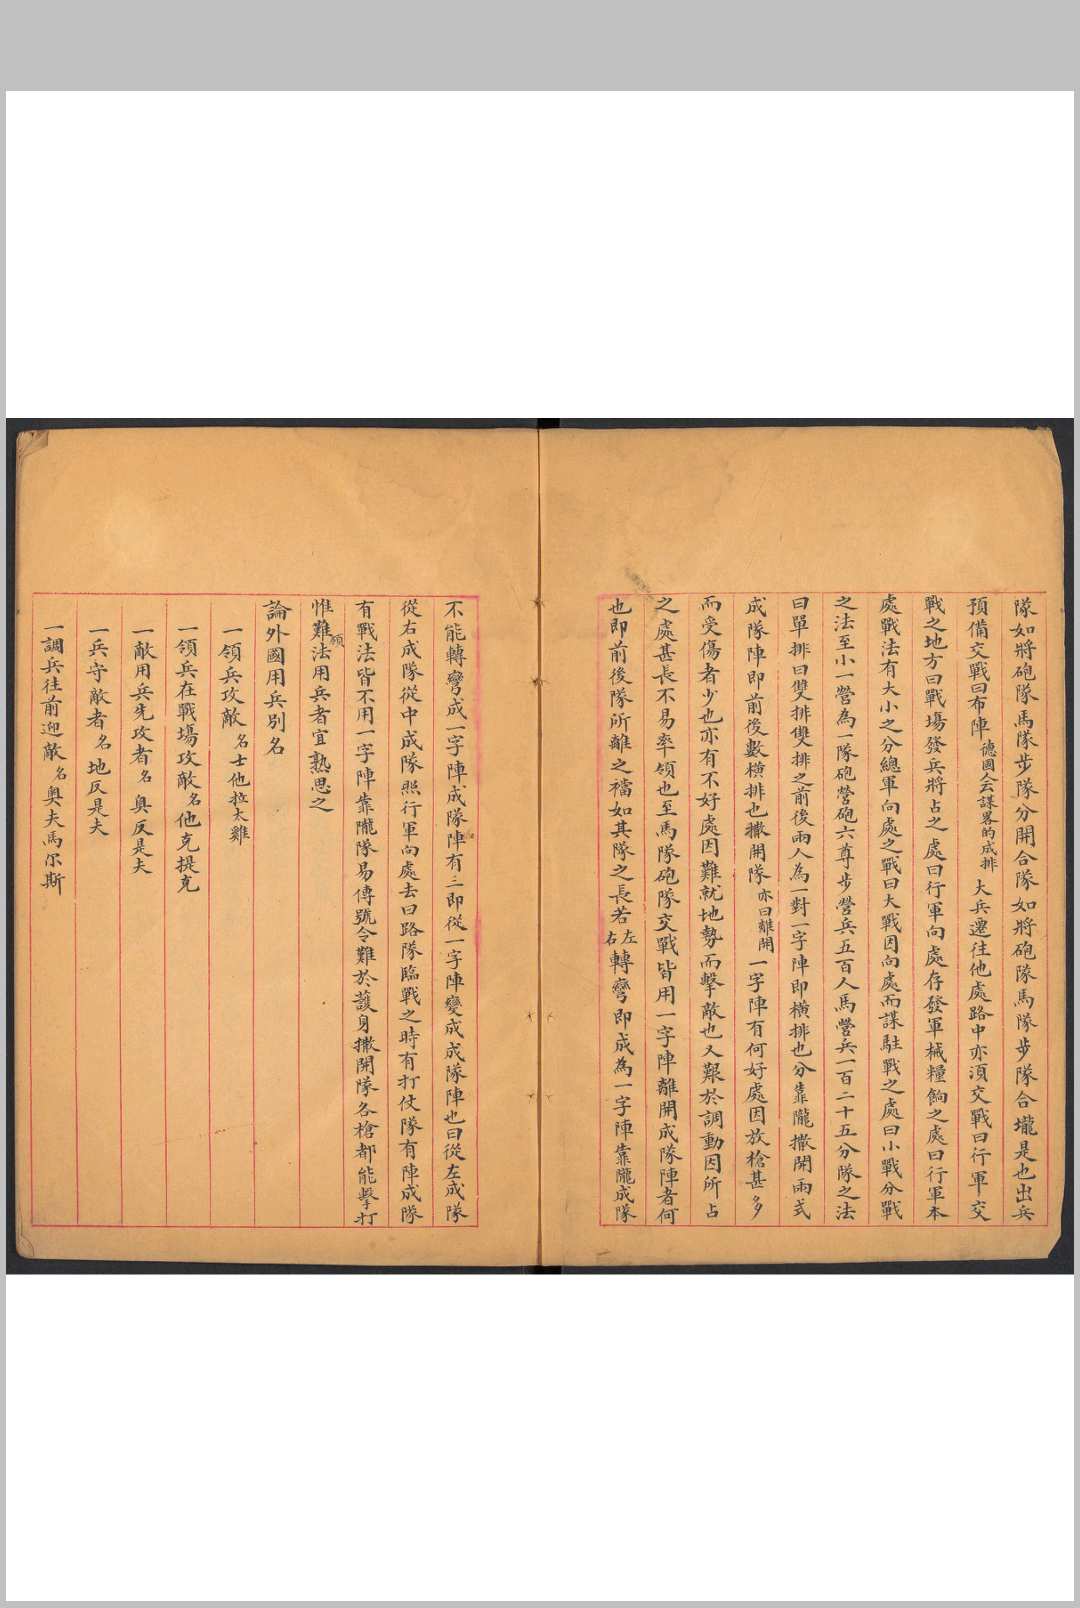 隊如將砲隊馬隊步隊分開合隊如將砲隊馬隊步隊合壠是也出兵
預備交戰曰布陣德國人云謀畧的成排大兵遷往他處路中亦湏交戰曰行軍交
戰之地方曰戰塲發兵將占之處曰行軍向處存發軍械糧餉之處曰行軍本
處戰法有大小之分總軍向處之戰曰大戰因向處而謀駐戰之處曰小戰分戰
之法至小一營為一隊砲營砲六尊步營兵五百人馬營兵一百二十五分隊之法
曰單排曰雙排雙排之前後兩人為一對一字陣即橫排也分靠隴撒開兩式
成隊陣即前後數橫排也撒開隊亦曰離開一字陣有何好處因放槍甚多
而受傷者少也亦有不好處因難就地勢而擊敵也又艱於調動因所占
之處甚長不易率領也至馬隊砲隊交戰皆用一字陣離開成隊陣者何
也即前後隊所離之襠如其隊之長若左右轉彎即成為一字陣靠隴成隊
不能轉彎成一字陣成隊陣有三即從一字陣變成成隊陣也曰從左成隊
從右成隊從中成隊照行軍向處去曰路隊臨戰之時有打仗隊有陣成隊
有戰法皆不用一字陣靠隴隊易傳號令難於護身撒開隊各槍都能擊打
惟難領法用兵者宜熟思之
論外國用兵別名
一領兵攻敵名士他拉太雞
一領兵在戰塲攻敵名他克提克
一敵用兵先攻者名奥反是夫
一兵守敵者名地反是夫
一調兵往前迎敵名奥夫馬尔斯